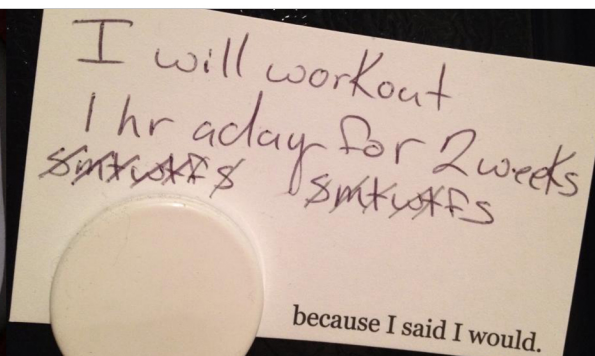 I will workout
1 hr a day for 2 weeks
smtwtfs smtwtfs
because I said I would.